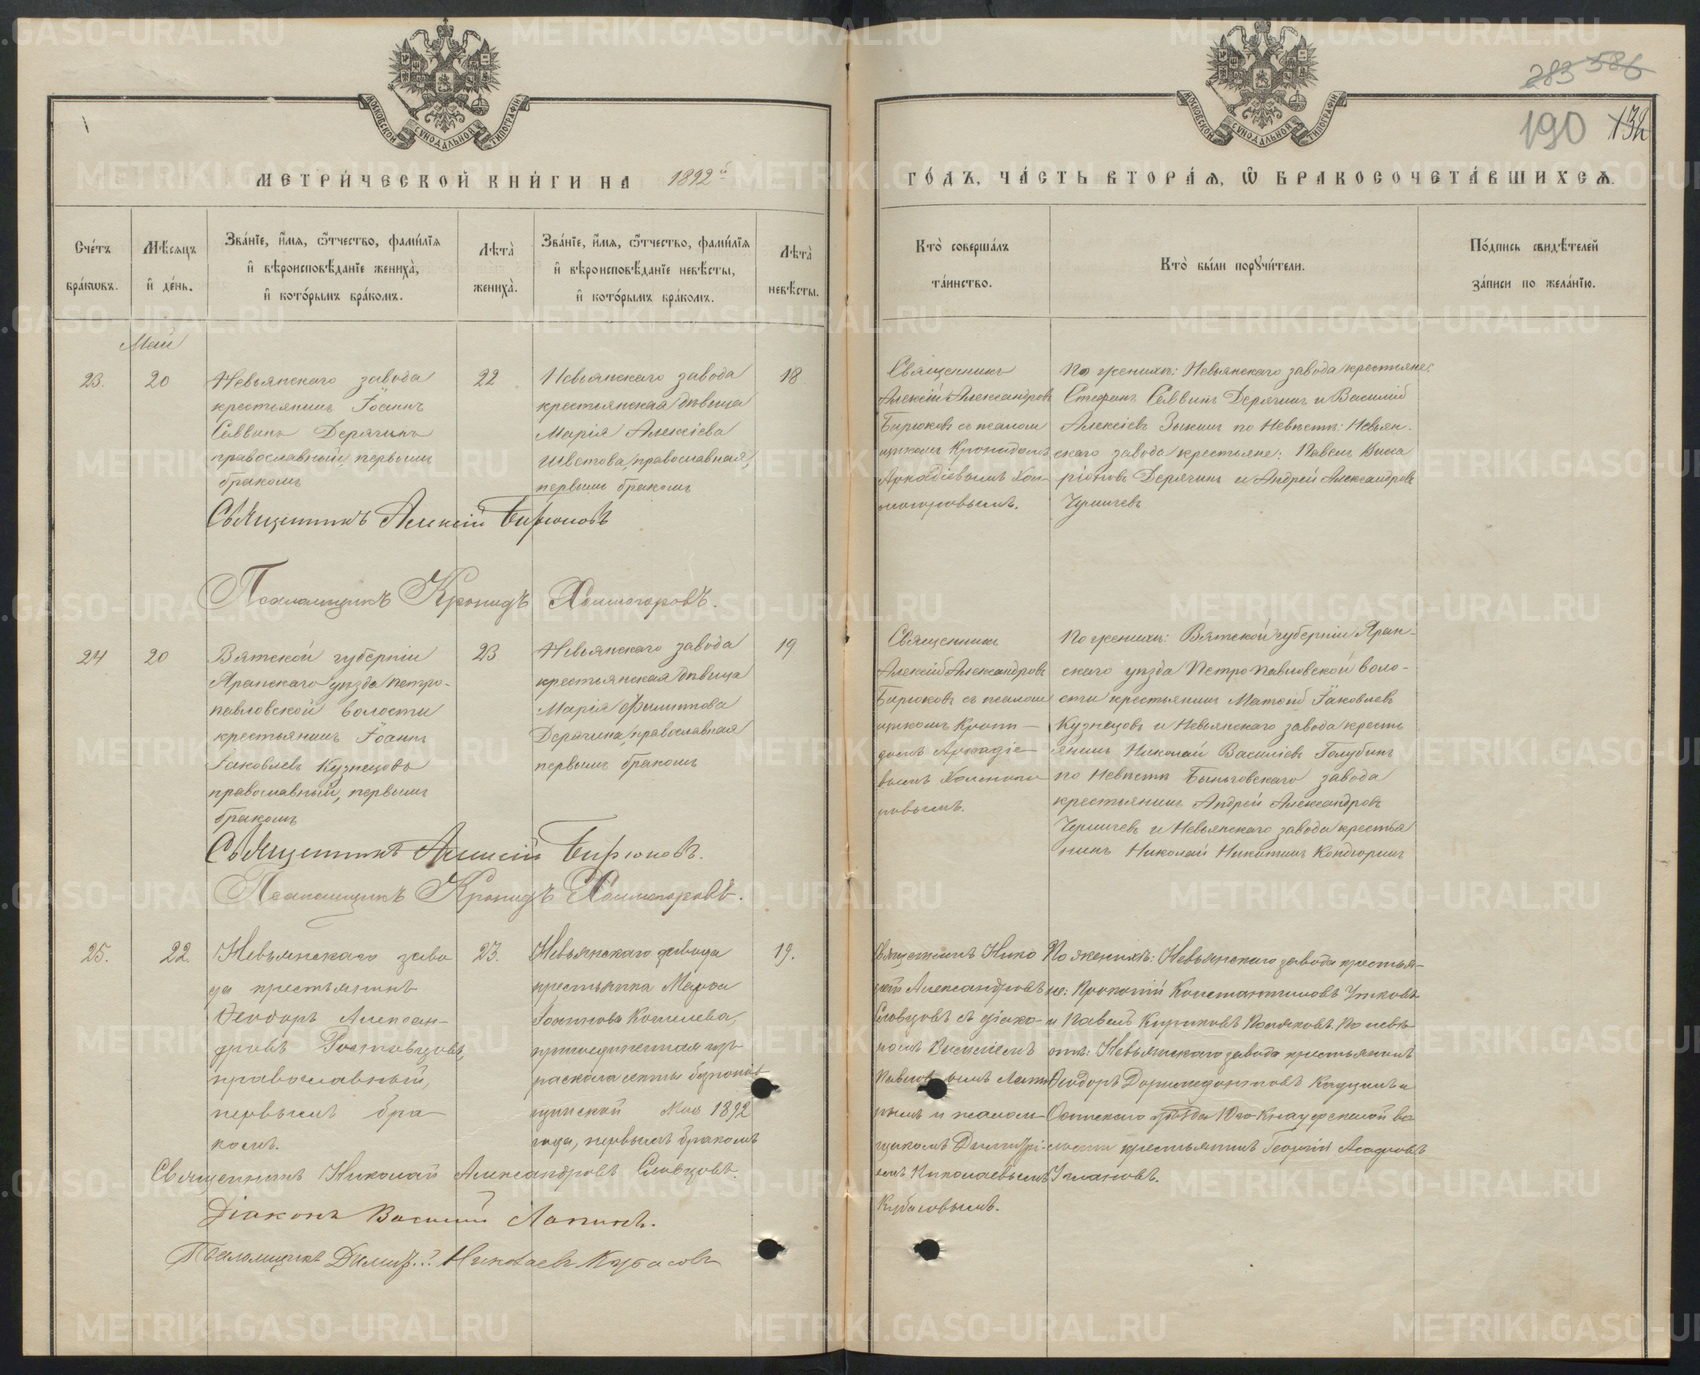 283 586
190 132
МЕТРИ́ЧЕСКОЙ КНИ́ГИ НА 1892й
ГО́ДЪ, ЧА́СТЬ ВТОРА́Я, Ѡ БРАКОСОЧЕТА́ВШИХСЯ.
Счётъ бра́кѡвъ.
Мѣ́сяцъ и҆ де́нь.
Зва́нїе, и҆́мя, ѻ҆́тчество, фами́лїя и҆ вѣроисповѣ́данїе жениха̀, и҆ кото́рымъ бра́комъ.
Лѣта̀ жениха̀.
Зва́нїе, и҆́мя, ѻ҆́тчество, фами́лїя и҆ вѣроисповѣ́данїе невѣ́сты, и҆ кото́рымъ бра́комъ.
Лѣта̀ невѣ́сты.
Кто̀ соверша́лъ та́инство.
Кто̀ бы́ли порꙋчи́тели.
По́дпись свидѣ́телей за́писи по жела́нїю.
Май
23.
20
Невьянскаго завода
крестьянинъ Іоаннъ
Саввинъ Дерягинъ
православный, первымъ
бракомъ
22
Невьянскаго завода
крестьянская дѣвица
Марія Алексіева
Швецова, православная,
первымъ бракомъ
18
Священникъ
Алексій Александровъ
Бирюковъ съ псалом
щикомъ Кронидомъ
Аркадіевымъ Хол-
могоровымъ.
По женихѣ: Невьянскаго завода крестьяне:
Стефанъ Саввинъ Дерягинъ и Василій
Алексіевъ Зыкинъ по Невѣстѣ: Невьян-
скаго завода крестьяне: Павелъ Висса
ріоновъ Дерягинъ и Андрей Александровъ
Чермчевъ
Священникъ Алексій Бирюковъ
Псаломщикъ Кронидъ Холмогоровъ.
24
20
Вятской губерніи
Яранскаго уѣзда Петро-
павловской волости
крестьянинъ Іоаннъ
Іаковлевъ Кузнецовъ
православный, первымъ
бракомъ
23
Невьянскаго завода
крестьянская дѣвица
Марія Филиппова
Дерягина, православная
первымъ бракомъ
19
Священникъ
Алексій Александровъ
Бирюковъ съ псалом
щикомъ Крони-
домъ Аркадіе-
вымъ Холмого
ровымъ.
По женихѣ: Вятской губерніи Яран-
скаго уѣзда Петропавловской воло-
сти крестьянинъ Матвій Іаковлевъ
Кузнецовъ и Невьянскаго завода кресть
янинъ Николай Василіевъ Голубинъ
по Невѣстѣ Быньговскаго завода
крестьянинъ Андрей Александровъ
Чермчевъ и Невьянскаго завода крестья
нинъ Николай Никитинъ Кондюринъ
Священникъ Алексій Бирюковъ.
Псаломщикъ Кронидъ Холмогоровъ.
25.
22.
Невьянскаго заво
да крестьянинъ
Ѳеодоръ Алексан-
дровъ Ростовцовъ,
православный,
первымъ бра-
комъ.
23.
Невьянскаго завода
крестьянка Марѳа
Іоаннова Кошелева,
присоединенная изъ
раскола секты безпопов
щинской Мая 1892
года, первымъ бракомъ
19.
Священникъ Нико
лай Александровъ
Словцовъ съ діако-
номъ Василіемъ
Павловымъ Лапи
нымъ и псалом-
щикомъ Димитрі-
емъ Николаевымъ
Кубасовымъ.
По женихѣ: Невьянскаго завода крестья-
не: Прокопій Константиновъ Утковъ
и Павелъ Кириковъ Поляковъ. По невѣ-
стѣ: Невьянскаго завода крестьянинъ
Ѳеодоръ Доримедонтовъ Кадцынъ и
Осинскаго уѣзда Юго-Кнауфской во
лости крестьянинъ Георгій Агафовъ
Улановъ.
Священникъ Николай Александровъ Словцовъ.
Діаконъ Василій Лапинъ.
Псаломщикъ Димитрій Николаевъ Кубасовъ